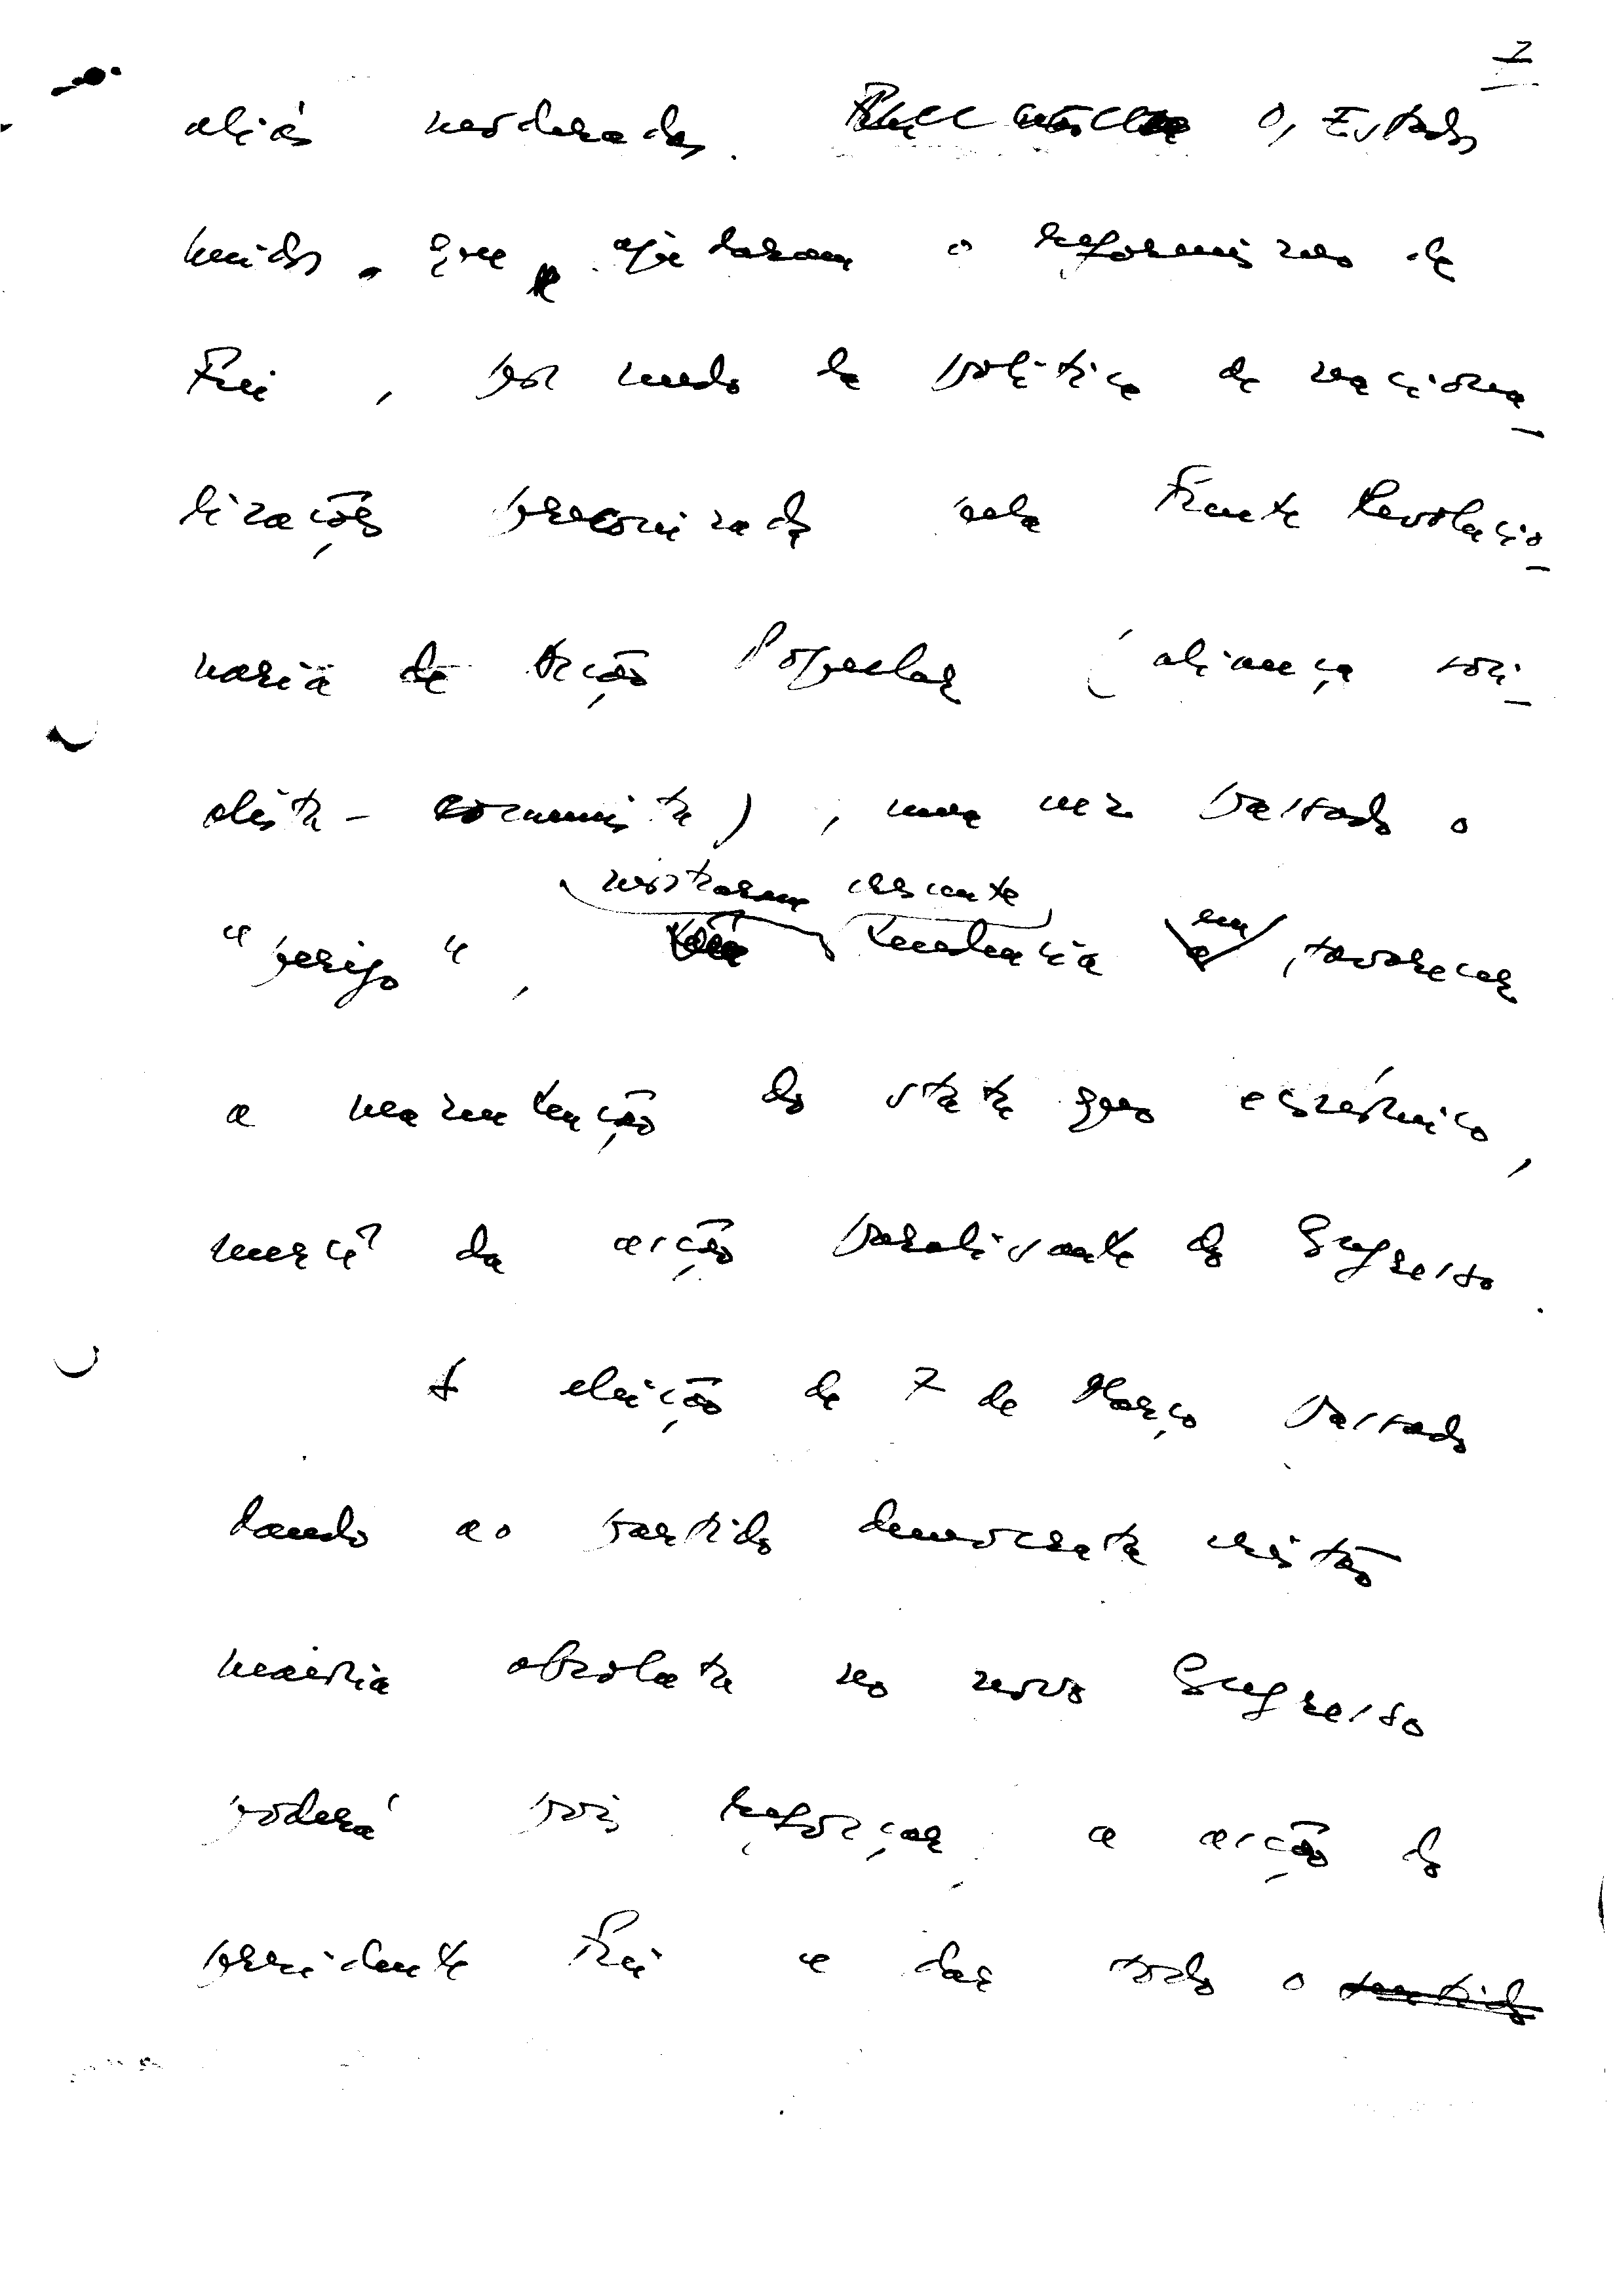 7
aliás moderadas. Os Estados
Unidos, que ajudaram o reformismo de
Frei, por medo da política de naciona-
lização preconizada pela Frente Revolucio-
nária de Acção Popular (aliança soci-
alista-comunista), uma vez passado o
mostraram crescente
"perigo", tendência em favorecer
a manutenção do statu quo económico,
mercê da acção paralisante do Congresso.
A eleição de 7 de Março passado
dando ao partido democrata cristão
maioria absoluta no novo Congresso
poderá pois reforçar a acção do
presidente Frei e dar todo o sentido